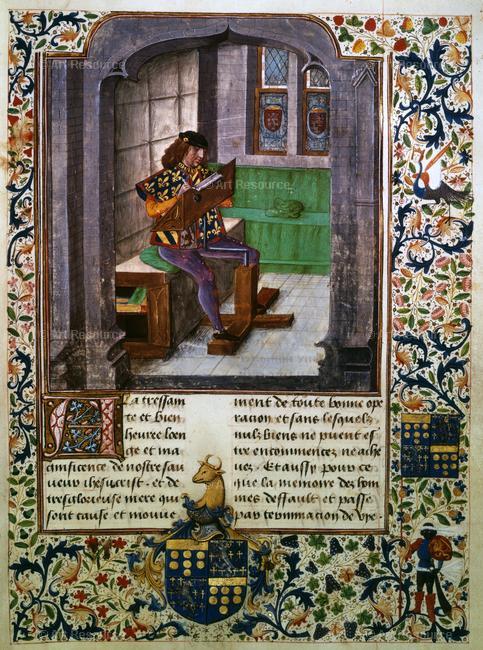 © Art Resource
© Art Resource
© Art Resource
A la tressain
te et bien
heuree loen
ge et ma
gnificence de nostre sau
ueur ihesucrist . et de
tresglorieuse mere qui
sont cause et mouue
ment de toute bonne ope
racion et sans lesquelz
nulz biens ne peuent es
tre encommencez ne ache
uez. Et aussy pour ce
que la memoire des hom
mes deffault et passe
par terminacion de vye